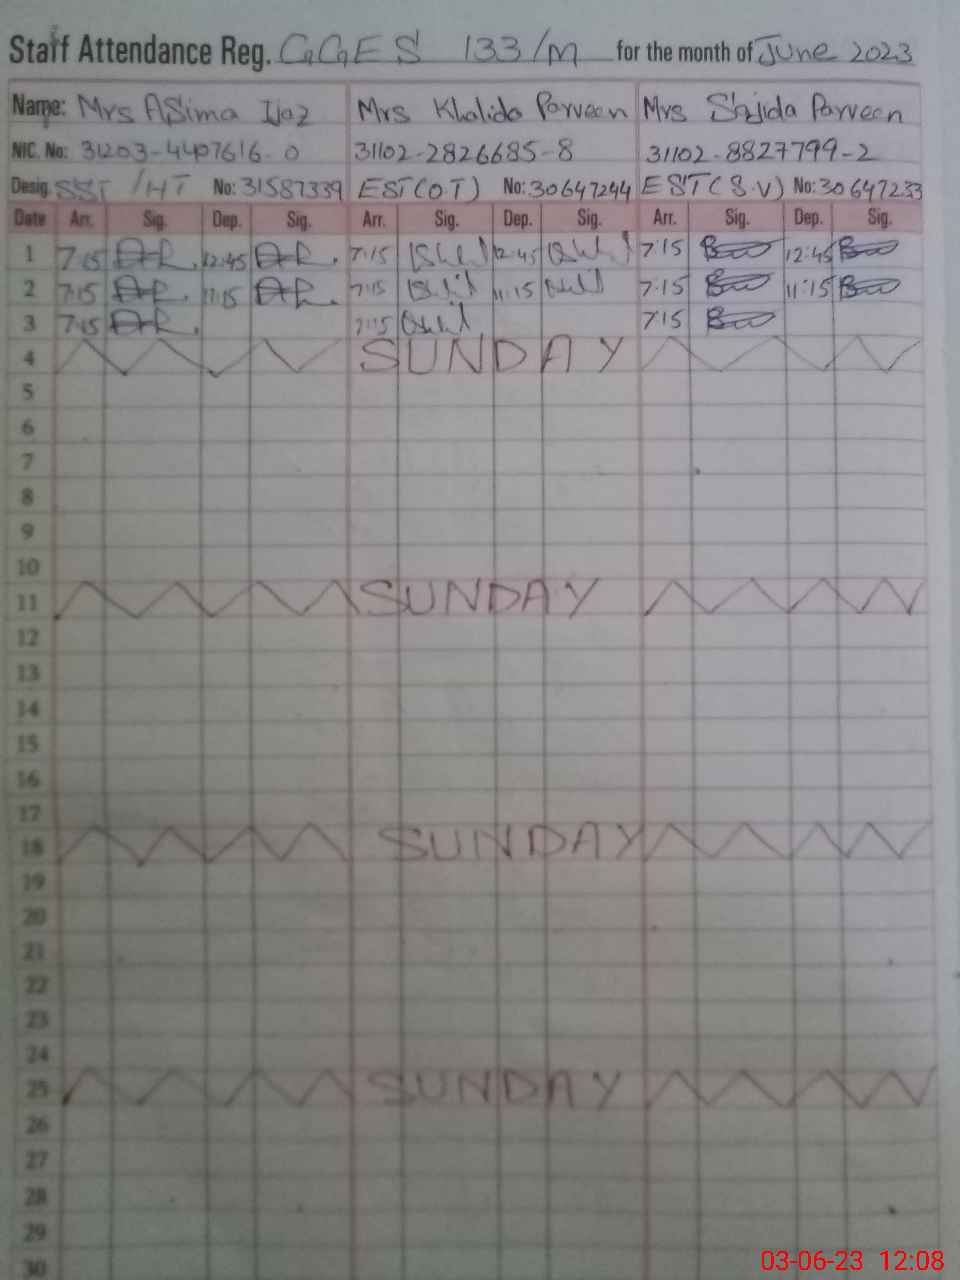 Staff Attendance Reg. GGES 133/M for the month of June 2023
Name: Mrs ASima Ijaz Mrs Khalida Parveen Mrs Sajida Parveen
NIC. No: 31203-4407616-0 31102-2826685-8 31102-8827799-2
Desig. SST /HT No: 31587339 EST(O.T) No: 30647244 EST(S.V) No: 30647233
Date Arr. Sig. Dep. Sig. Arr. Sig. Dep. Sig. Arr. Sig. Dep. Sig.
1 7:15 12:45 7:15 12:45 7:15 12:45
2 7:15 11:15 7:15 11:15 7:15 11:15
3 7:15 7:15 7:15
4 SUNDAY
5
6
7
8
9
10
11 SUNDAY
12
13
14
15
16
17
18 SUNDAY
19
20
21
22
23
24
25 SUNDAY
26
27
28
29
30
03-06-23 12:08